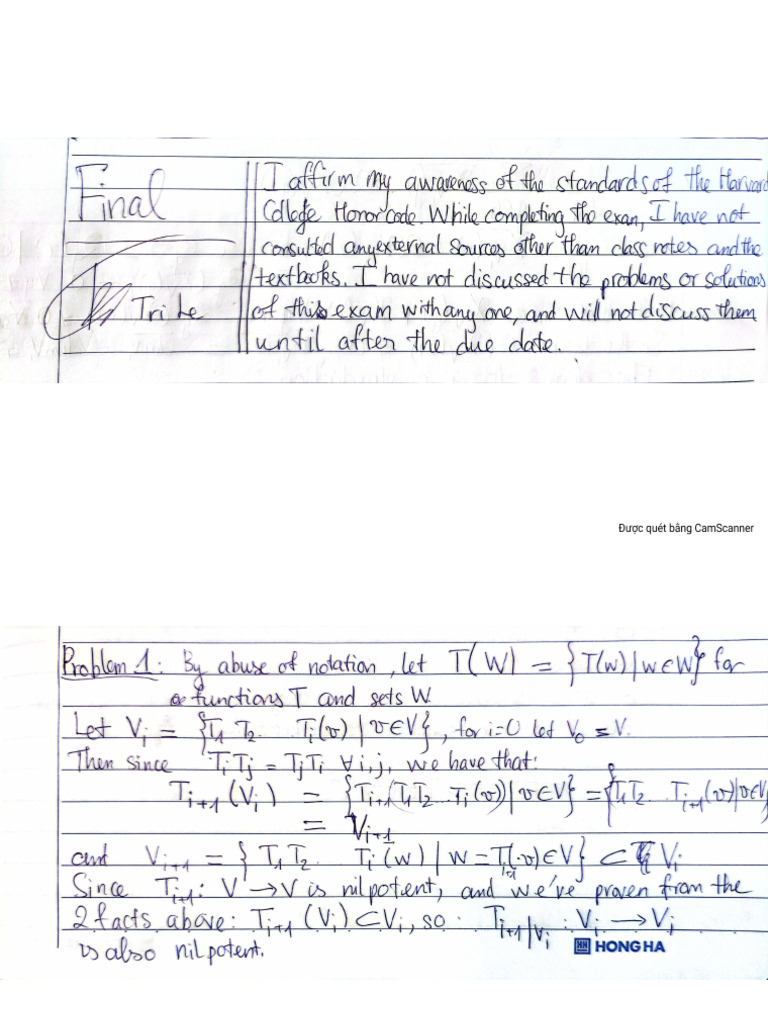 Final
I affirm my awareness of the standards of the Harvard
College Honor code. While completing the exam, I have not
consulted any external sources other than class notes and the
textbooks. I have not discussed the problems or solutions
Tri Le
of this exam with any one, and will not discuss them
until after the due date.
Được quét bằng CamScanner
Problem 1: By abuse of notation, let T(W) = {T(w) | w ∈ W} for
functions T and sets W.
Let V_i = {T_1 T_2 T_i(v) | v ∈ V}, for i=0 let V_0 = V.
Then since T_i T_j = T_j T_i ∀ i,j, we have that:
T_{i+1}(V_i) = {T_{i+1}(T_1 T_2 T_i(v)) | v ∈ V} = {T_1 T_2 T_{i+1}(v) | v ∈ V}
= V_{i+1}
and V_{i+1} = {T_1 T_2 T_i(w) | w = T_{i+1}(v) ∈ V} ⊂ V_i
Since T_{i+1}: V → V is nilpotent, and we've proven from the
2 facts above: T_{i+1}(V_i) ⊂ V_i, so T_{i+1}|V_i : V_i → V_i
is also nilpotent.
HONG HA